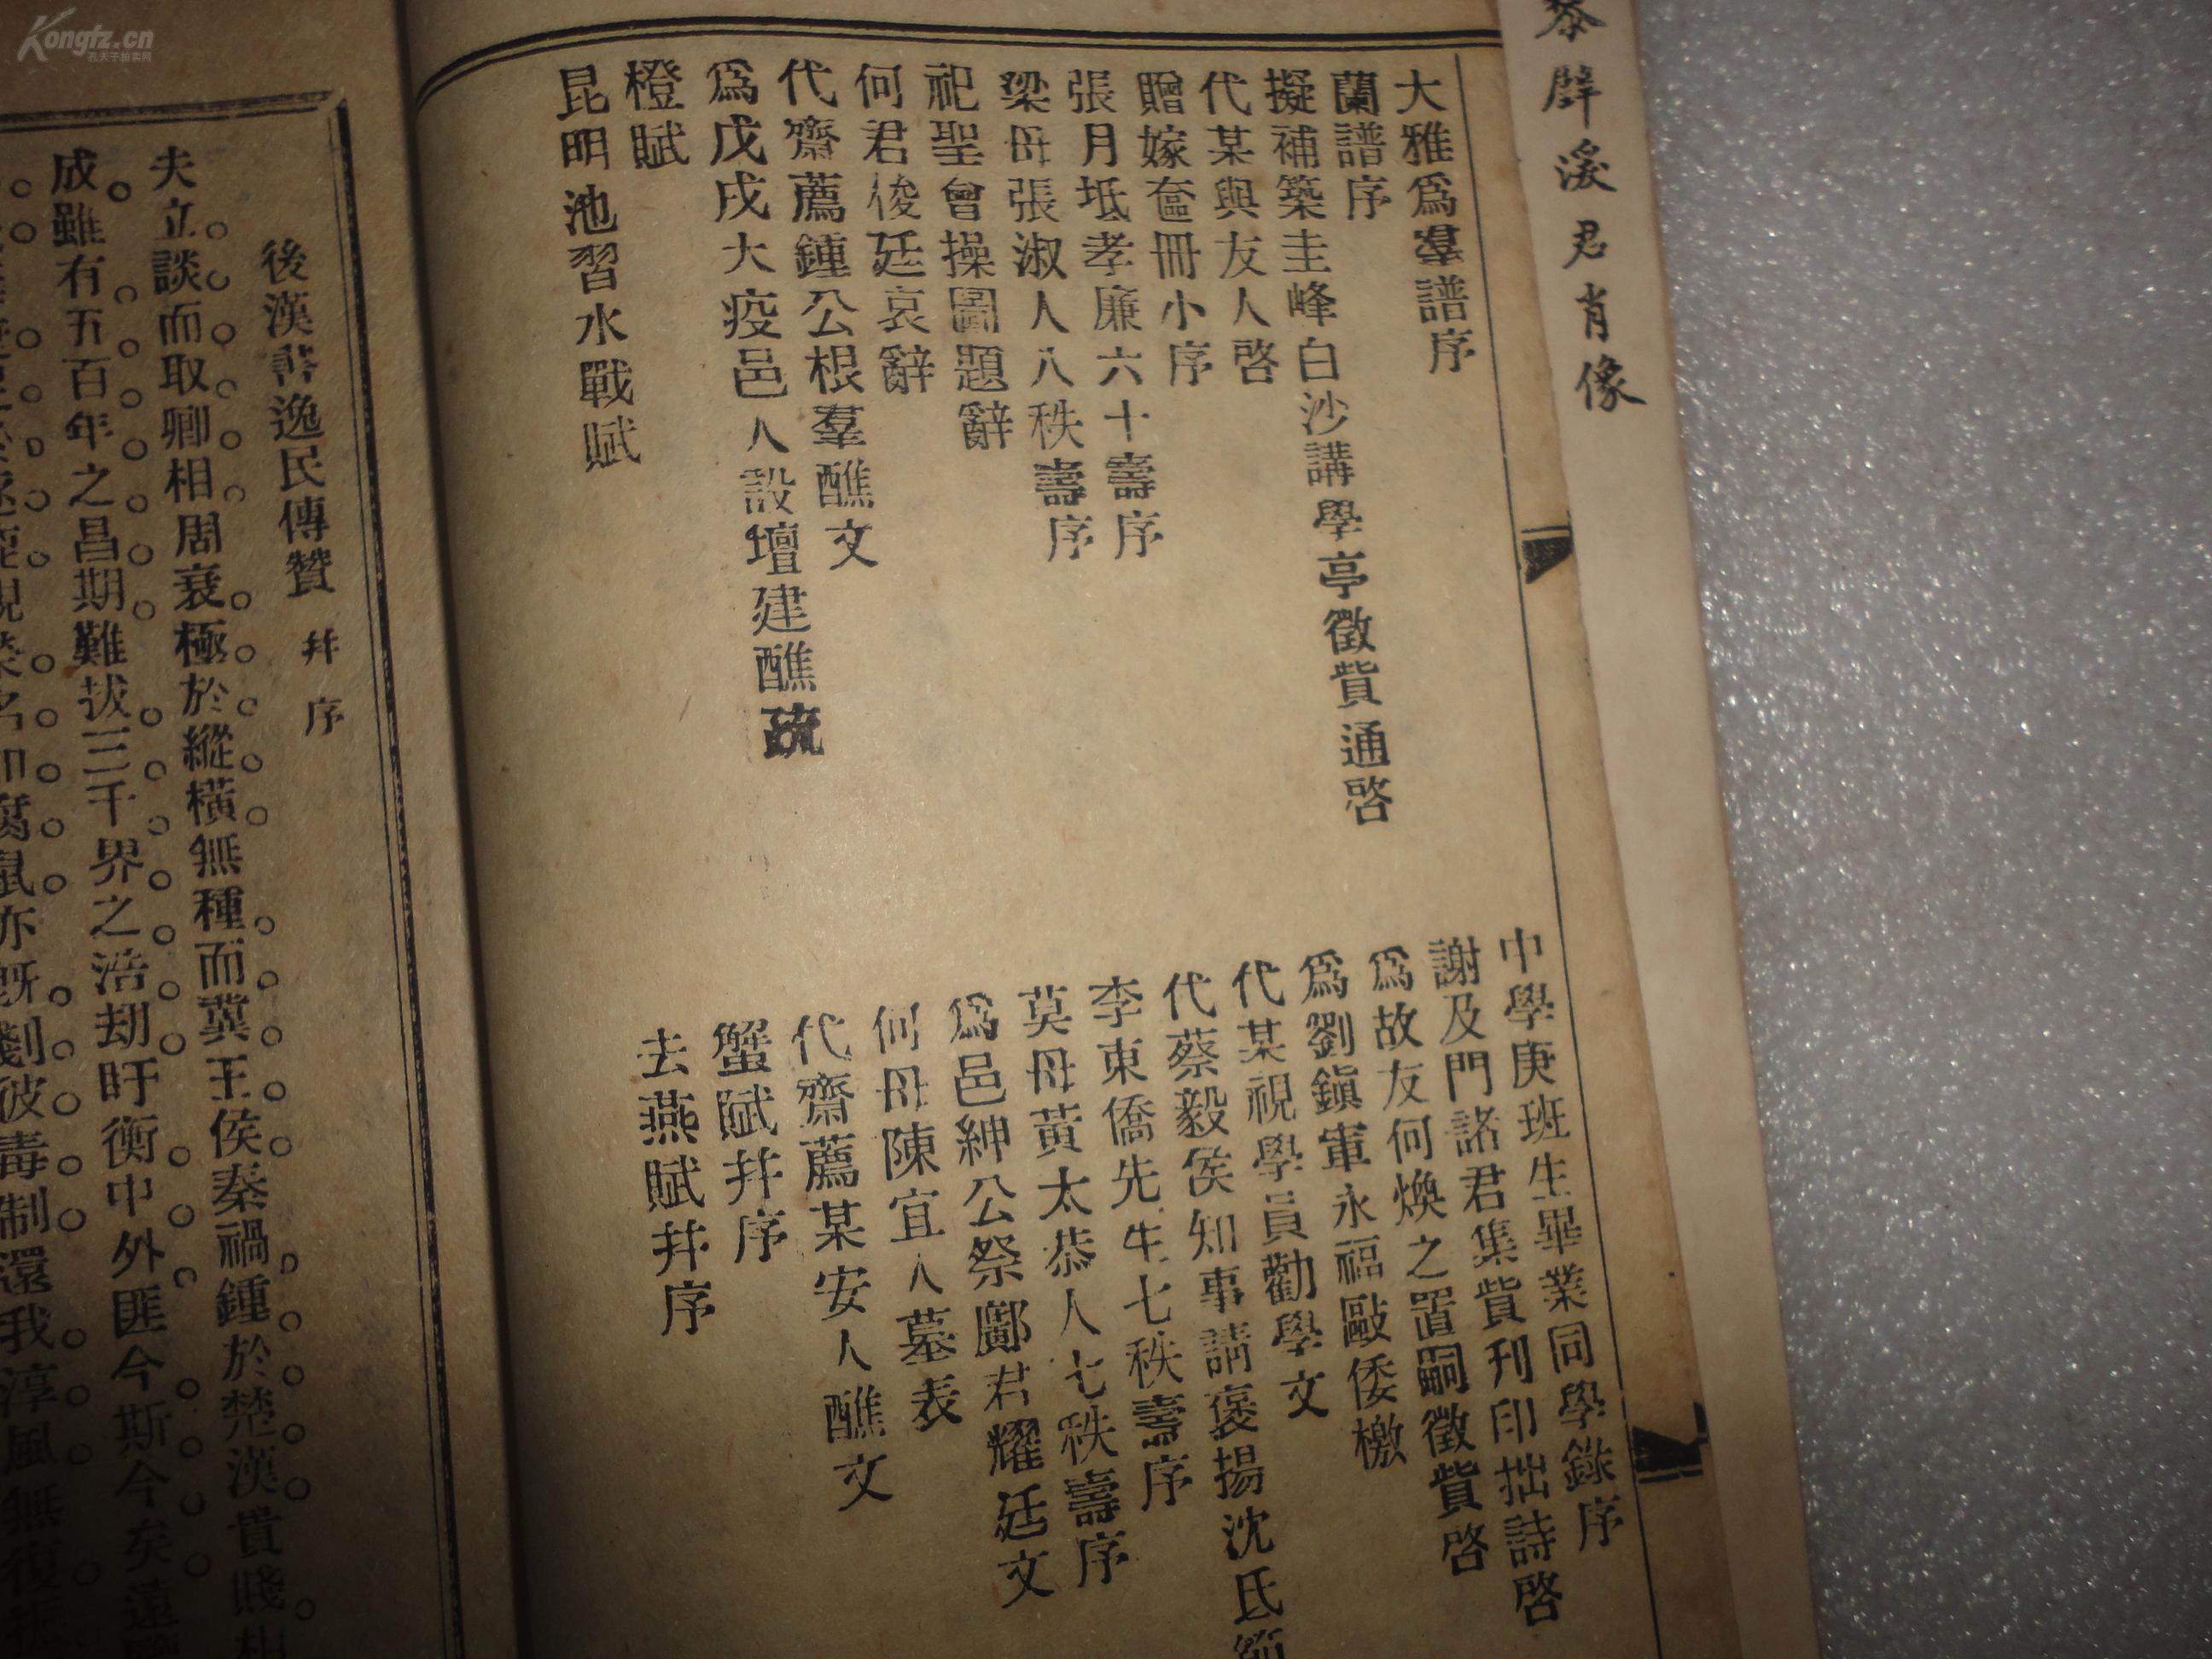 Kongfz.cn
孔夫子拍卖网
黎辟溪君肖像
大雅爲羣譜序
蘭譜序
擬補築圭峰白沙講學亭徵貲通啓
代某與友人啓
贈嫁奩冊小序
張月坻孝廉六十壽序
梁母張淑人八秩壽序
祀聖會操圖題辭
何君俊廷哀辭
代齋薦鍾公根羣醮文
爲戊戌大疫邑人設壇建醮疏
橙賦
昆明池習水戰賦
中學庚班生畢業同學錄序
謝及門諸君集貲刊印拙詩啓
爲故友何煥之置嗣徵貲啓
爲劉鎭軍永福毆倭檄
代某視學員勸學文
代蔡毅侯知事請褒揚沈氏節
李東僑先生七秩壽序
莫母黃太恭人七秩壽序
爲邑紳公祭鄺君耀廷文
何母陳宜人墓表
代齋薦某安人醮文
蟹賦幷序
去燕賦幷序
後漢書逸民傳贊 幷序
夫立談而取卿相周衰極於縱橫無種而冀王侯秦禍鍾於楚漢貴賤相
成雖有五百年之昌期難拔三千界之浩刧盱衡中外匪今斯今矣遠
名如腐鼠亦旣剗彼毒制還我淳風無復